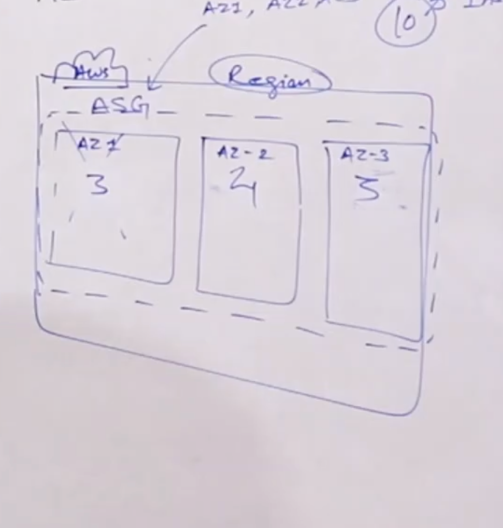 AZ1, AZ2
10
AWS
Region
ASG
AZ1
AZ-2
AZ-3
3
4
3